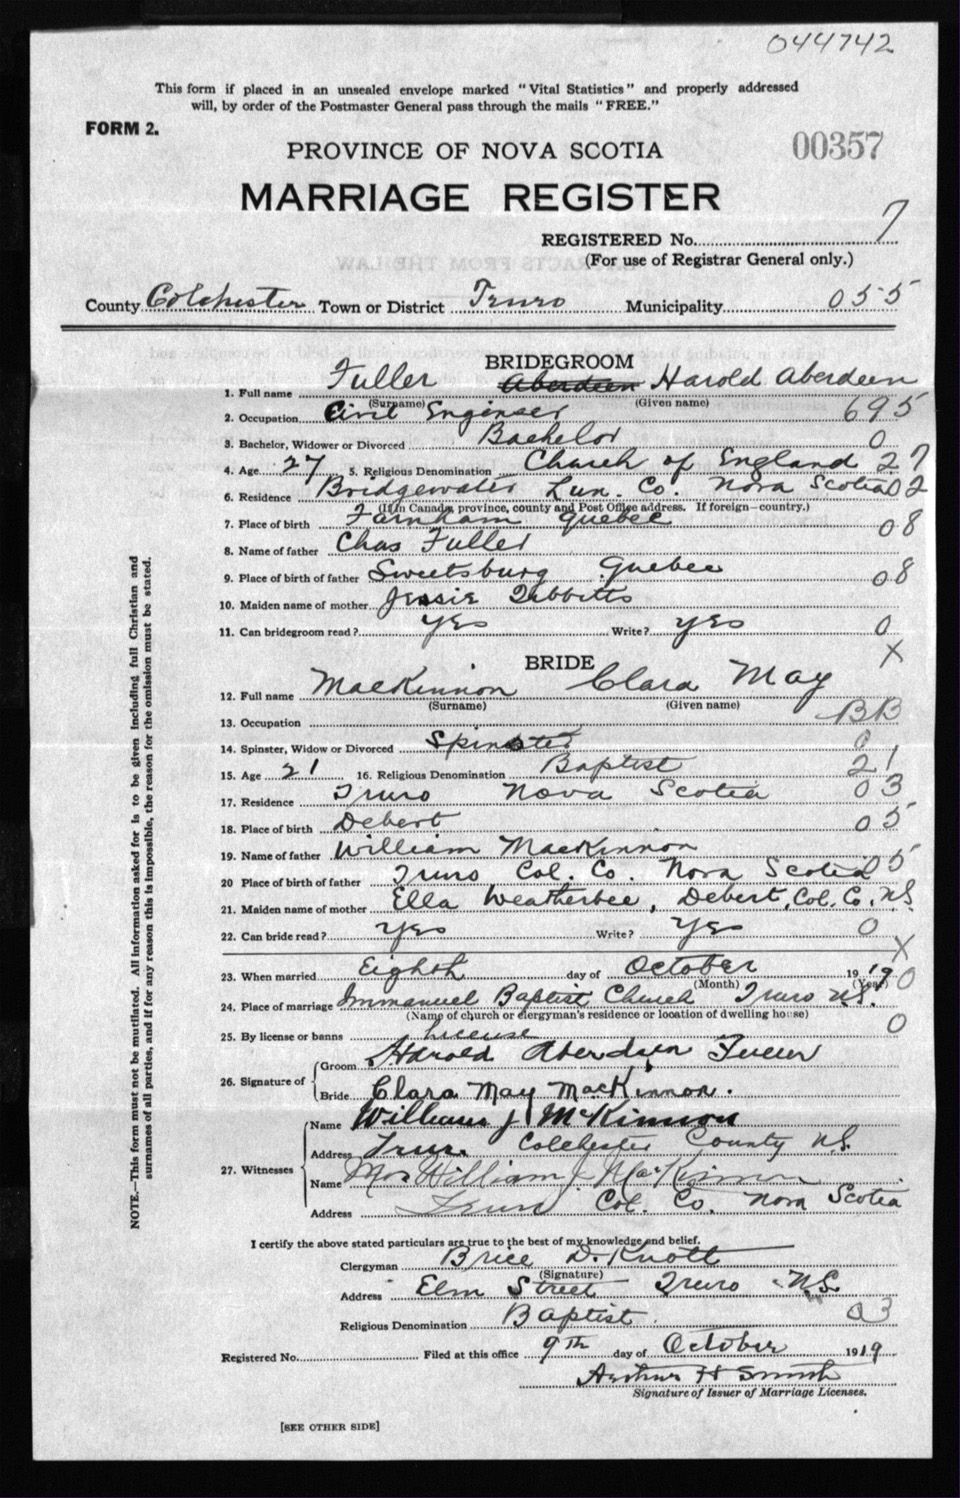 044742
This form if placed in an unsealed envelope marked "Vital Statistics" and properly addressed
will, by order of the Postmaster General pass through the mails "FREE."
FORM 2.
PROVINCE OF NOVA SCOTIA
00357
MARRIAGE REGISTER
REGISTERED No. 7
(For use of Registrar General only.)
County Colchester Town or District Truro Municipality 055
BRIDEGROOM
1. Full name Fuller Aberdeen Harold Aberdeen
(Surname) (Given name)
2. Occupation Civil Engineer 695
3. Bachelor, Widower or Divorced Bachelor 0
4. Age 27 5. Religious Denomination Church of England 27
6. Residence Bridgewater Lun. Co. Nova Scotia 02
(If in Canada, province, county and Post Office address. If foreign—country.)
7. Place of birth Farnham Quebec 08
8. Name of father Chas Fuller
9. Place of birth of father Sweetsburg Quebec 08
10. Maiden name of mother Jessie Tibbitts
11. Can bridegroom read? Yes Write? Yes 0
X
BRIDE
12. Full name MacKinnon Clara May
(Surname) (Given name)
13. Occupation BB
14. Spinster, Widow or Divorced Spinster 0
15. Age 21 16. Religious Denomination Baptist 21
17. Residence Truro Nova Scotia 03
18. Place of birth Debert 05
19. Name of father William MacKinnon
20 Place of birth of father Truro Col. Co. Nova Scotia 05
21. Maiden name of mother Ella Weatherbee, Debert, Col. Co, N.S
22. Can bride read? Yes Write? Yes 0
X
23. When married Eighth day of October 1919 0
(Month) (Year)
24. Place of marriage Immanuel Baptist Church Truro N.S.
(Name of church or clergyman's residence or location of dwelling house)
25. By license or banns License 0
26. Signature of
Groom Harold Aberdeen Fuller
Bride Clara May MacKinnon.
27. Witnesses
Name William J McKinnon
Address Truro Colchester County N.S.
Name Mrs William J. MacKinnon
Address Truro Col. Co. Nova Scotia
I certify the above stated particulars are true to the best of my knowledge and belief.
Clergyman Brice D. Knott
(Signature)
Address Elm Street Truro N.S.
Religious Denomination Baptist. 03
Registered No. Filed at this office 9th day of October 1919
Arthur H Smith
Signature of Issuer of Marriage Licenses.
[SEE OTHER SIDE]
NOTE.—This form must not be mutilated. All information asked for is to be given including full Christian and
surnames of all parties, and if for any reason this is impossible, the reason for the omission must be stated.